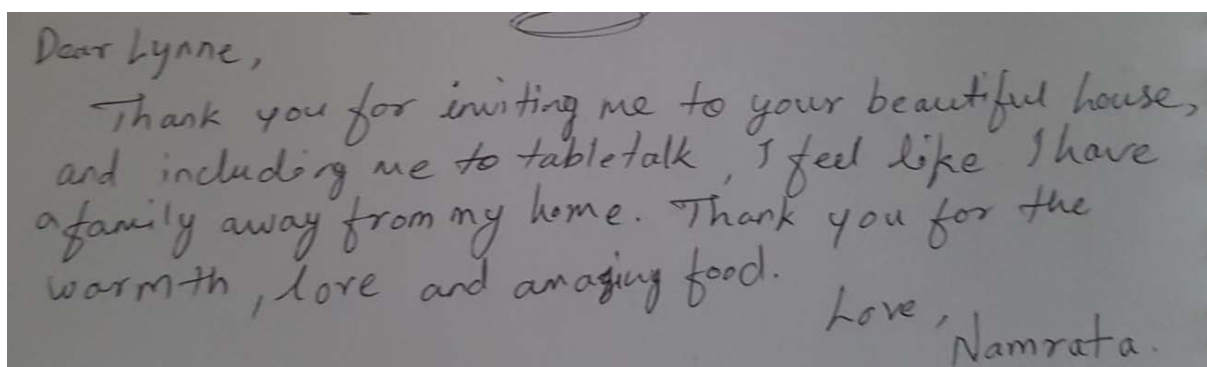 Dear Lynne,
Thank you for inviting me to your beautiful house,
and including me to tabletalk, I feel like I have
a family away from my home. Thank you for the
warmth, love and amazing food.
Love,
Namrata.